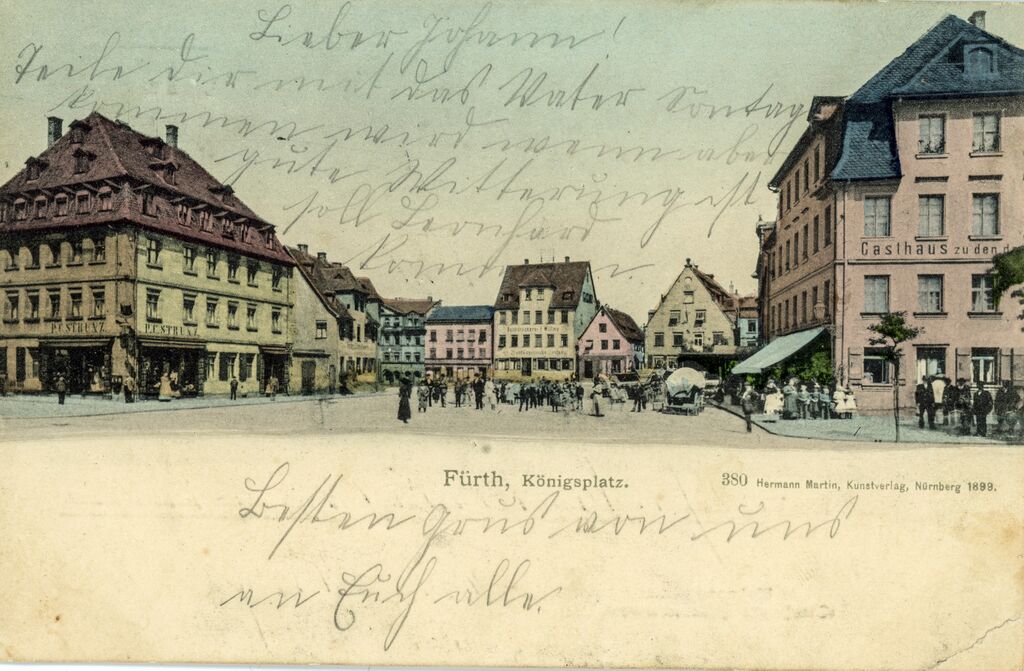 Lieber Johann!
Teile dir mit das Vater Sontag
kommen wird wenn aber
gute Witterung ist
soll Leonhard
kommen
P. E. STRLAZ
P. E. STRLAZ
Gasthaus zu den d
Fürth, Königsplatz.
380 Hermann Martin, Kunstverlag, Nürnberg 1899.
Besten grus von uns
an Euch alle.